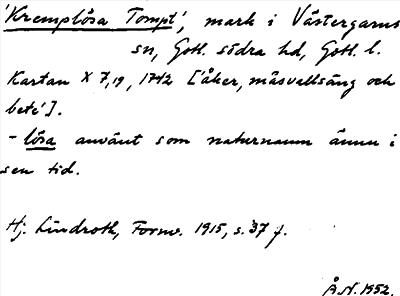 'Kremplösa Tompt', mark i Västergarns
sn, Gotl. södra hd, Gotl. l.
Kartan X 7,19, 1742 ['åker, måsvallsäng och
bete'].
- lösa använt som naturnamn ännu i
sen tid.
Hj. Lindroth, Fornv. 1915, s. 37 f.
Å.N. 1952.